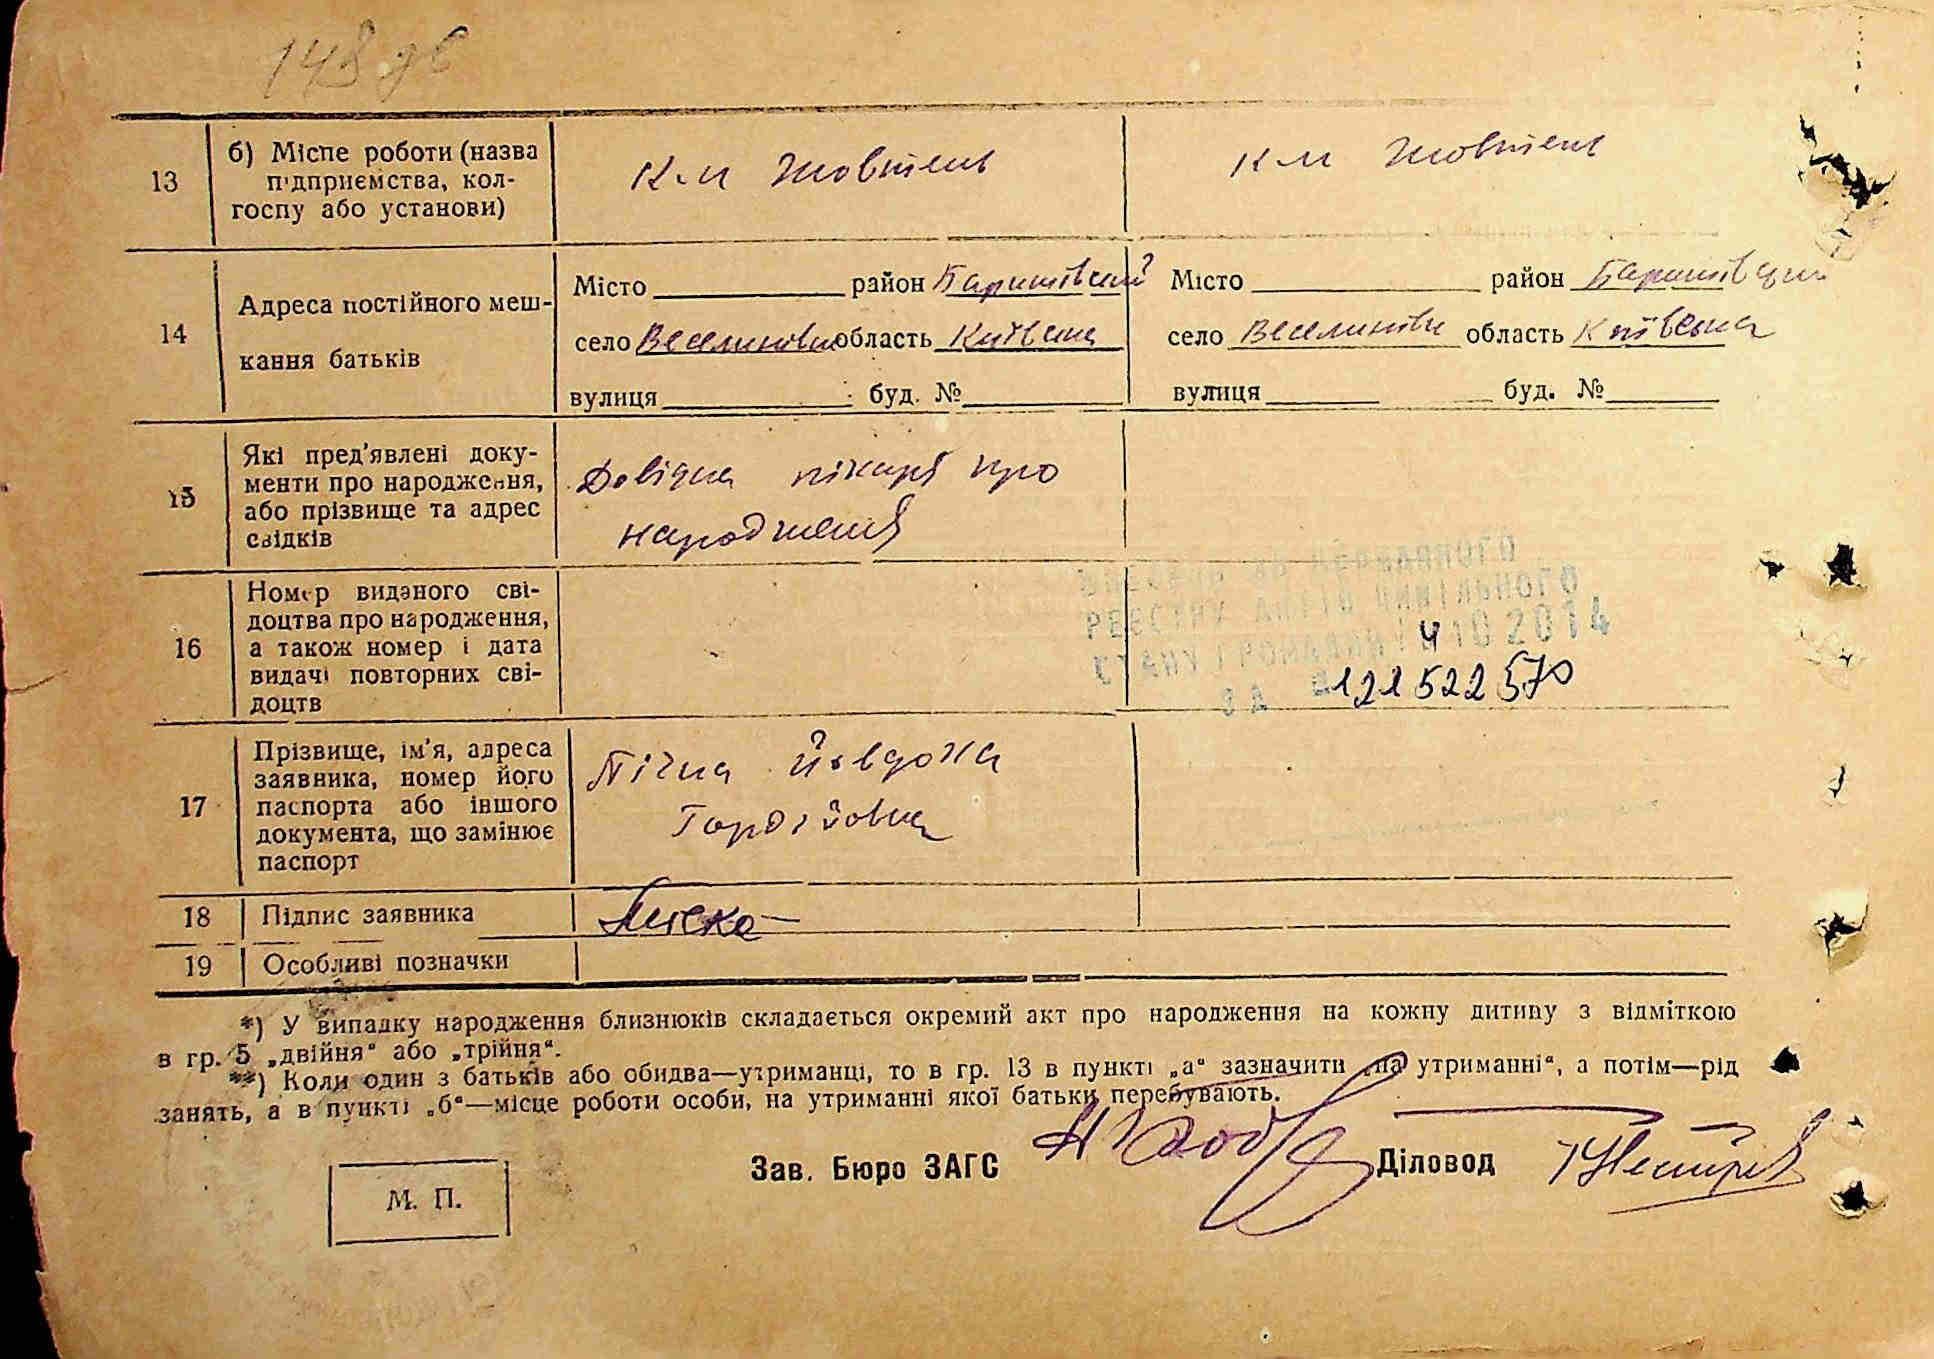 148 дв
13
б) Місце роботи (назва
підприємства, кол-
госпу або установи)
К-м Жовтень
К-м Жовтень
14
Адреса постійного меш-
кання батьків
Місто район Баришівський
село Веселинівка область Київська
вулиця буд. №
Місто район Баришівський
село Веселинівка область Київська
вулиця буд. №
15
Які пред'явлені доку-
менти про народження,
або прізвище та адрес
свідків
Довідка лікаря про
народження
16
Номер виданого сві-
доцтва про народження,
а також номер і дата
видачі повторних сві-
доцтв
ВНЕСЕНО ДО ДЕРЖАВНОГО
РЕЄСТРУ АКТІВ ЦИВІЛЬНОГО
СТАНУ ГРОМАДЯН 4 10 2014
ЗА 121522570
17
Прізвище, ім'я, адреса
заявника, номер його
паспорта або іншого
документа, що замінює
паспорт
Йовдоха
Гордіївна
18
Підпис заявника
19
Особливі позначки
*) У випадку народження близнюків складається окремий акт про народження на кожну дитину з відміткою
в гр. 5 „двійня“ або „трійня“.
**) Коли один з батьків або обидва—утриманці, то в гр. 13 в пункті „а“ зазначити „на утриманні“, а потім—рід
занять, а в пункті „б“—місце роботи особи, на утриманні якої батьки перебувають.
Зав. Бюро ЗАГС
Діловод
М. П.